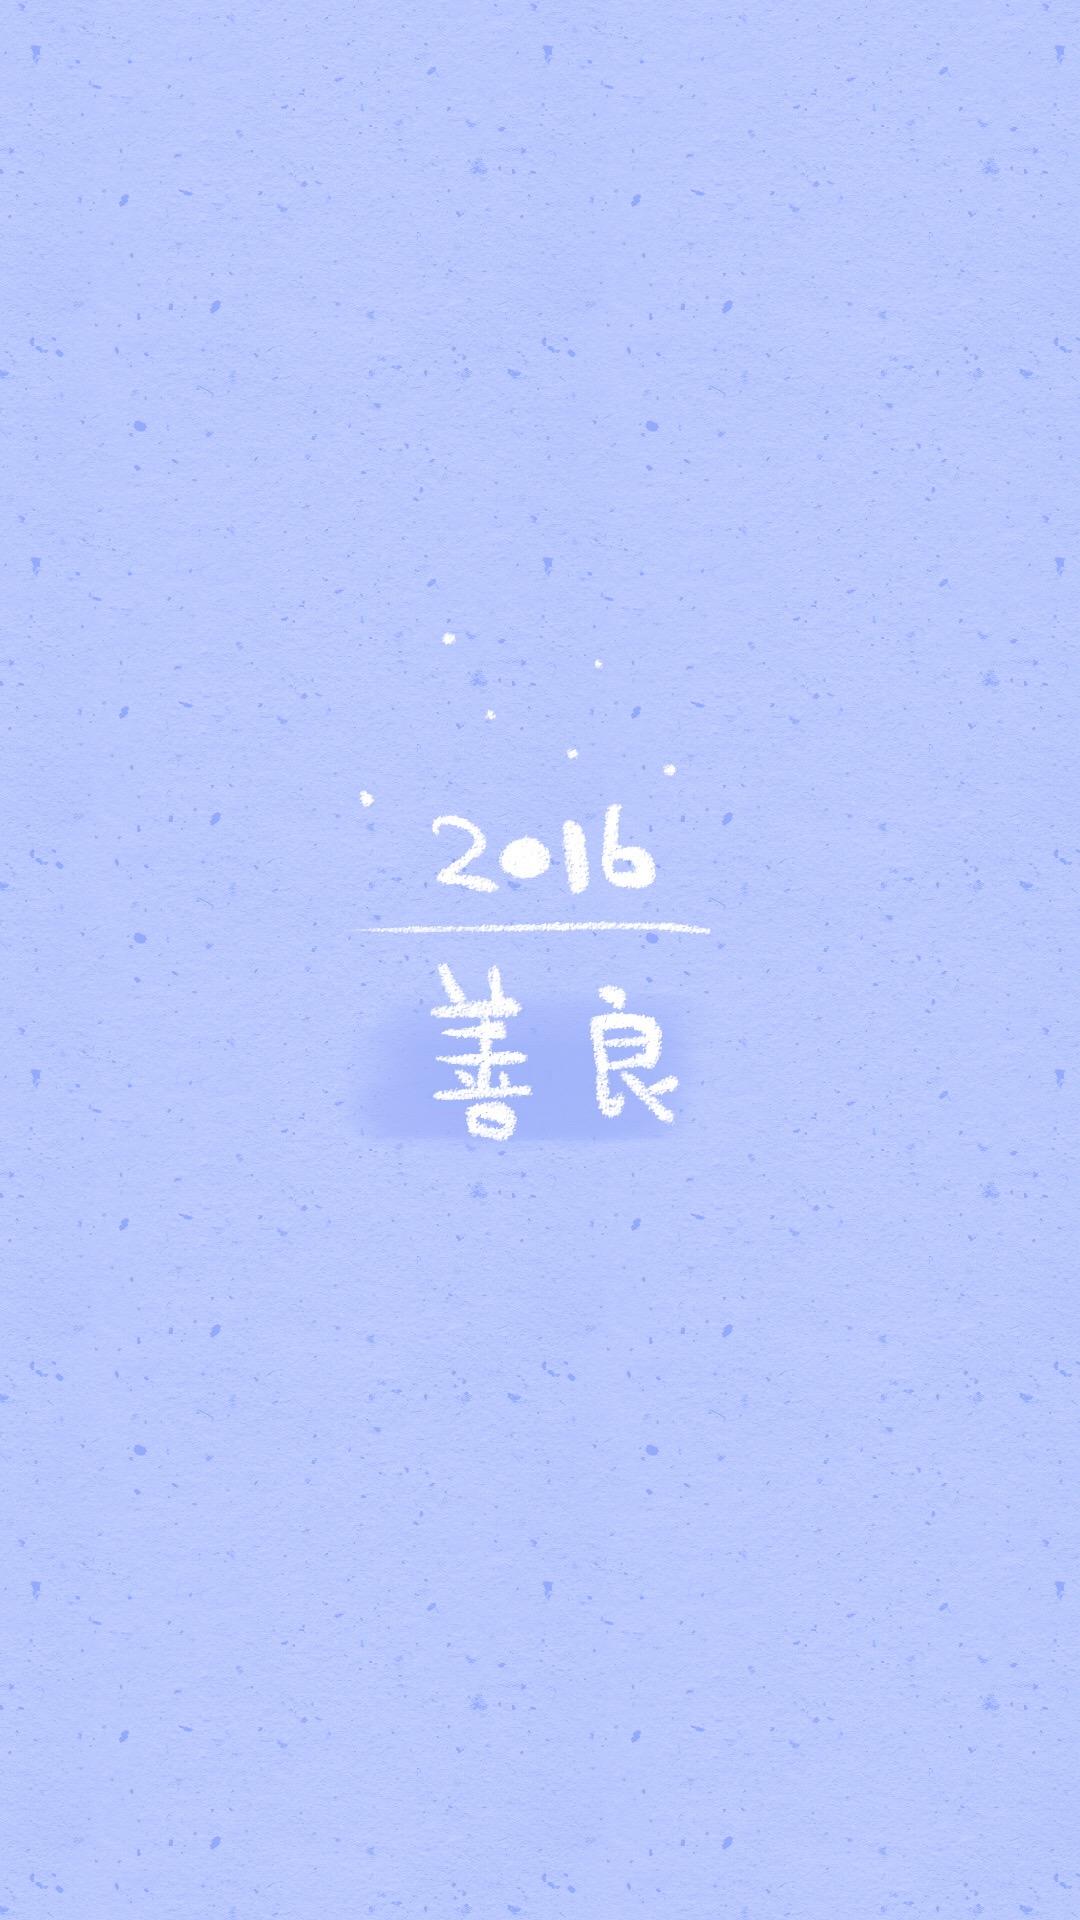 2016
善良